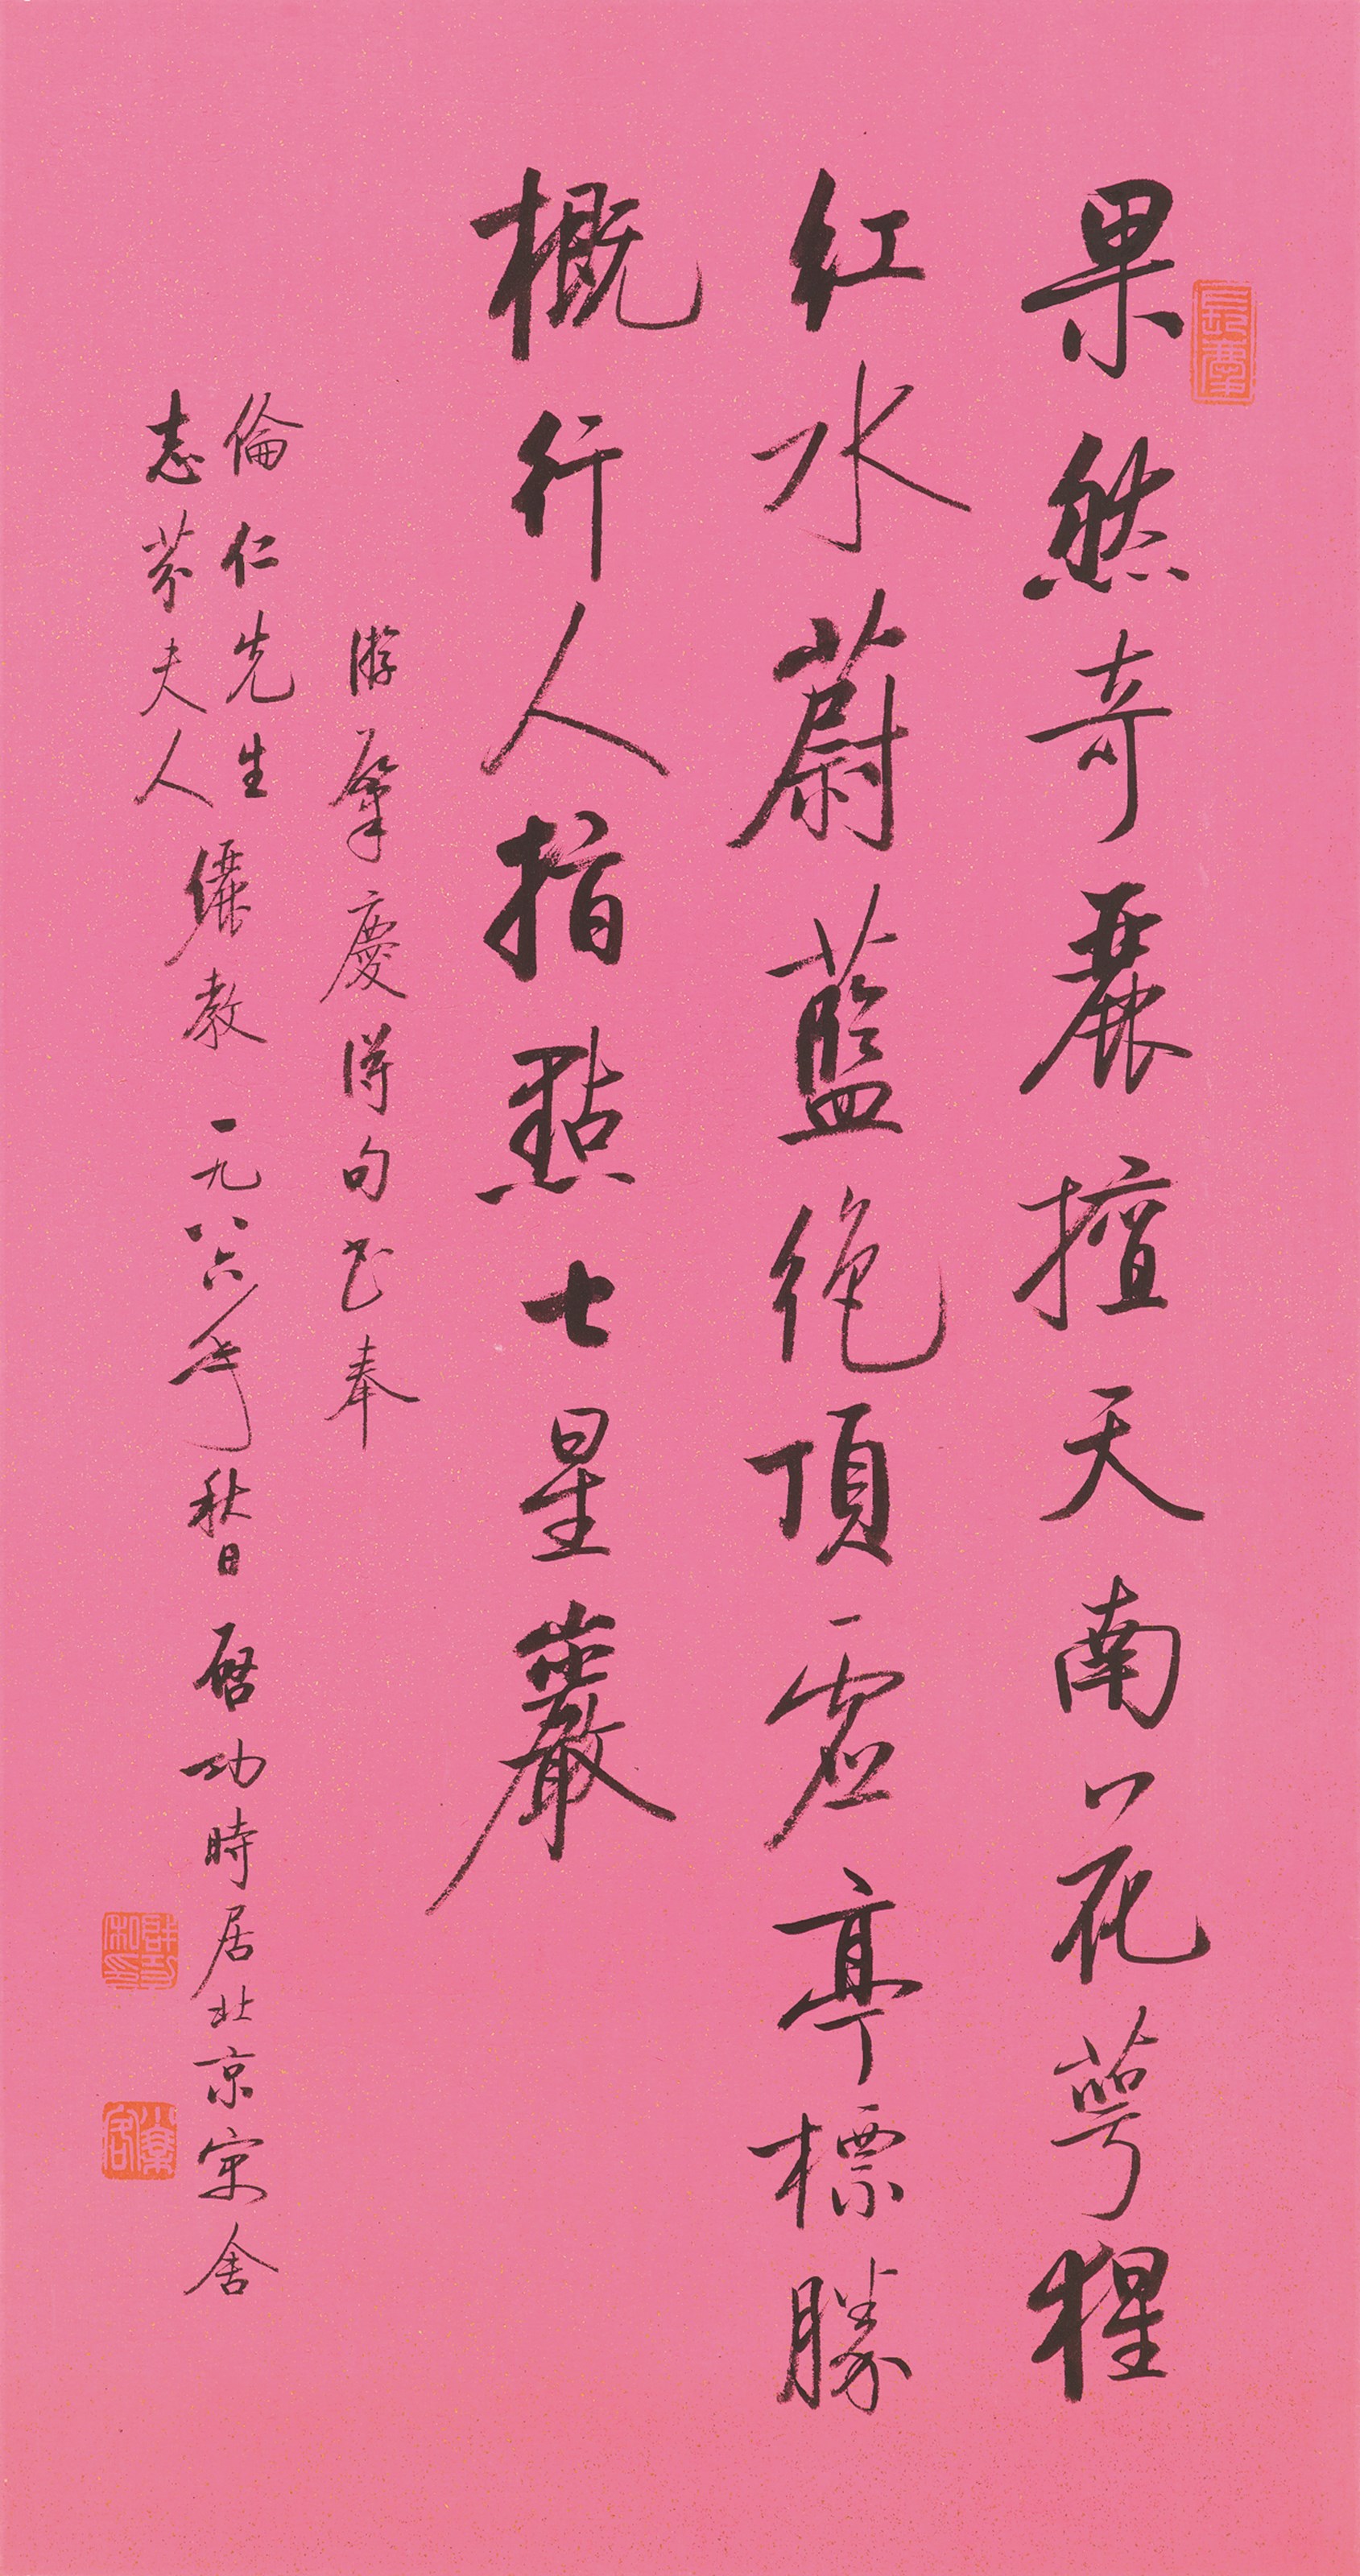 果然奇麗擅天南花萼猩
紅水蔚藍絕頂虛亭標勝
概行人指點七星巖
游肇慶得句書奉
倫仁先生
志芬夫人
儷教一九八六年秋日啓功時居北京寓舍